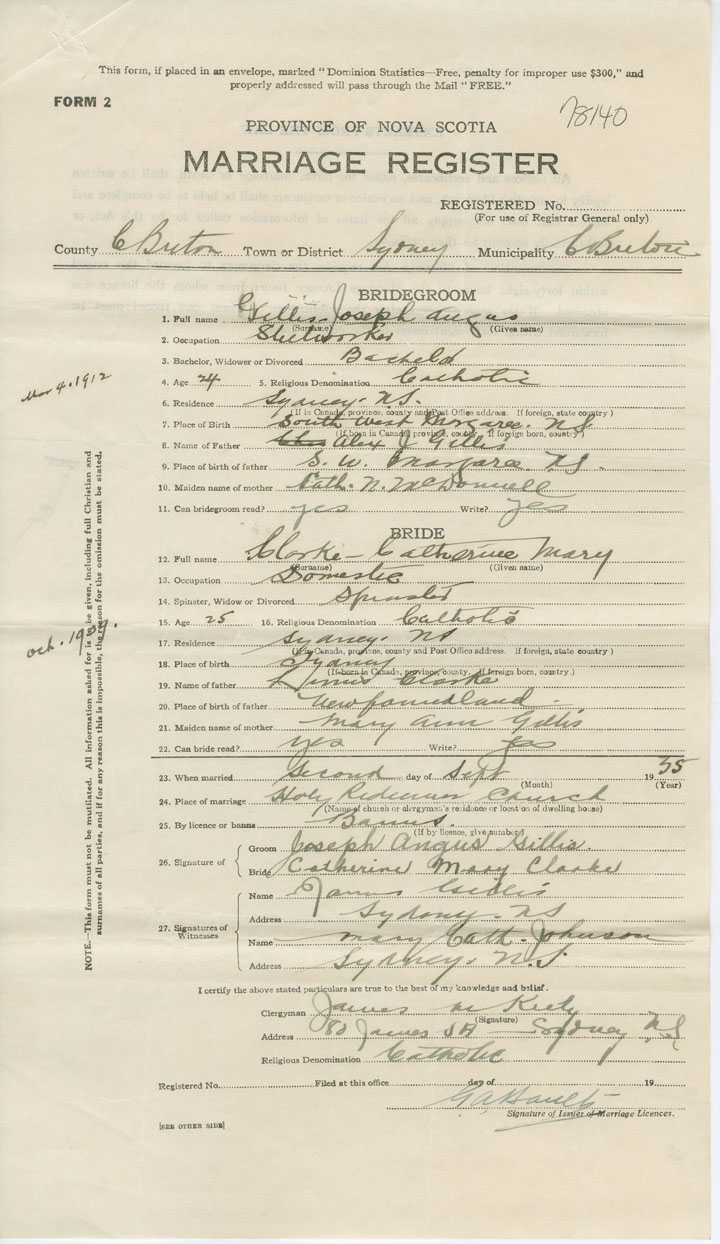 This form, if placed in an envelope, marked "Dominion Statistics—Free, penalty for improper use $300," and
properly addressed will pass through the Mail "FREE."
FORM 2
78140
PROVINCE OF NOVA SCOTIA
MARRIAGE REGISTER
REGISTERED No.
(For use of Registrar General only)
County C Breton Town or District Sydney Municipality C Breton
BRIDEGROOM
1. Full name Gillis Joseph Angus
(Surname) (Given name)
2. Occupation Steelworker
3. Bachelor, Widower or Divorced Bachelor
Mar 4. 1912
4. Age 24 5. Religious Denomination Catholic
6. Residence Sydney. N.S.
(If in Canada, province, county and Post Office address. If foreign, state country)
7. Place of Birth South West Margaree. N.S
(If born in Canada, province, county, if foreign born, country)
8. Name of Father Alex J Gillis
9. Place of birth of father S. W. Margaree N.S.
10. Maiden name of mother Cath. N. McDonnell
11. Can bridegroom read? yes Write? yes
BRIDE
12. Full name Clarke - Catherine Mary
(Surname) (Given name)
13. Occupation Domestic
14. Spinster, Widow or Divorced Spinster
15. Age 25 16. Religious Denomination Catholic
oct.
17. Residence Sydney. NS
(If in Canada, province, county and Post Office address. if foreign, state country)
18. Place of birth Sydney
(If born in Canada, province, county, if foreign born, country)
19. Name of father Clarke
20. Place of birth of father Newfoundland
21. Maiden name of mother Mary Ann Gillis
22. Can bride read? yes Write? yes
23. When married Second day of Sept 1935
(Month) (Year)
24. Place of marriage Holy Redeemer Church
(Name of church or clergyman's residence or location of dwelling house)
25. By licence or banns Banns
(If by licence, give number)
26. Signature of
Groom Joseph Angus Gillis.
Bride Catherine Mary Clarke
27. Signatures of Witnesses
Name James Gillis
Address Sydney - N.S
Name Mary Cath. Johnson
Address Sydney. N.S.
I certify the above stated particulars are true to the best of my knowledge and belief.
Clergyman James
(Signature)
Address James St Sydney N.S
Religious Denomination Catholic
Registered No. Filed at this office day of 19
Signature of Issuer of Marriage Licences.
[SEE OTHER SIDE]
NOTE.—This form must not be mutilated. All information asked for is to be given, including full Christian and
surnames of all parties, and if for any reason this is impossible, the reason for the omission must be stated.